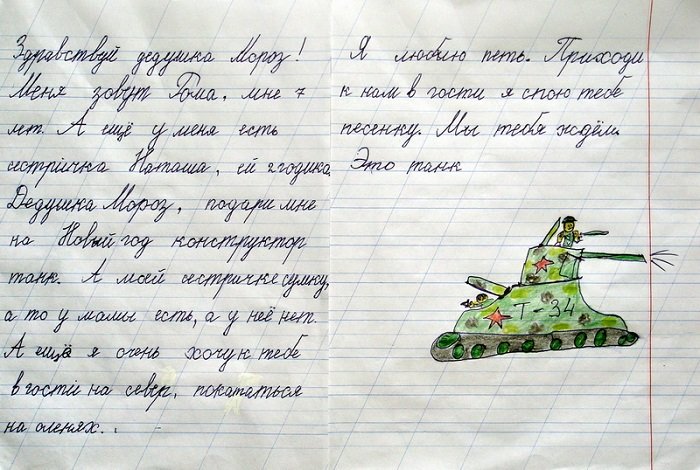 Здравствуй дедушка Мороз!
Меня зовут Рома, мне 7
лет. А ещё у меня есть
сестричка Наташа, ей 2 годика.
Дедушка Мороз, подари мне
на Новый год конструктор
танк. А моей сестричке сумку,
а то у мамы есть, а у неё нет.
А ещё я очень хочу к тебе
в гости на север, покататься
на оленях.
Я люблю петь. Приходи
к нам в гости я спою тебе
песенку. Мы тебя ждём.
Это танк
Т-34